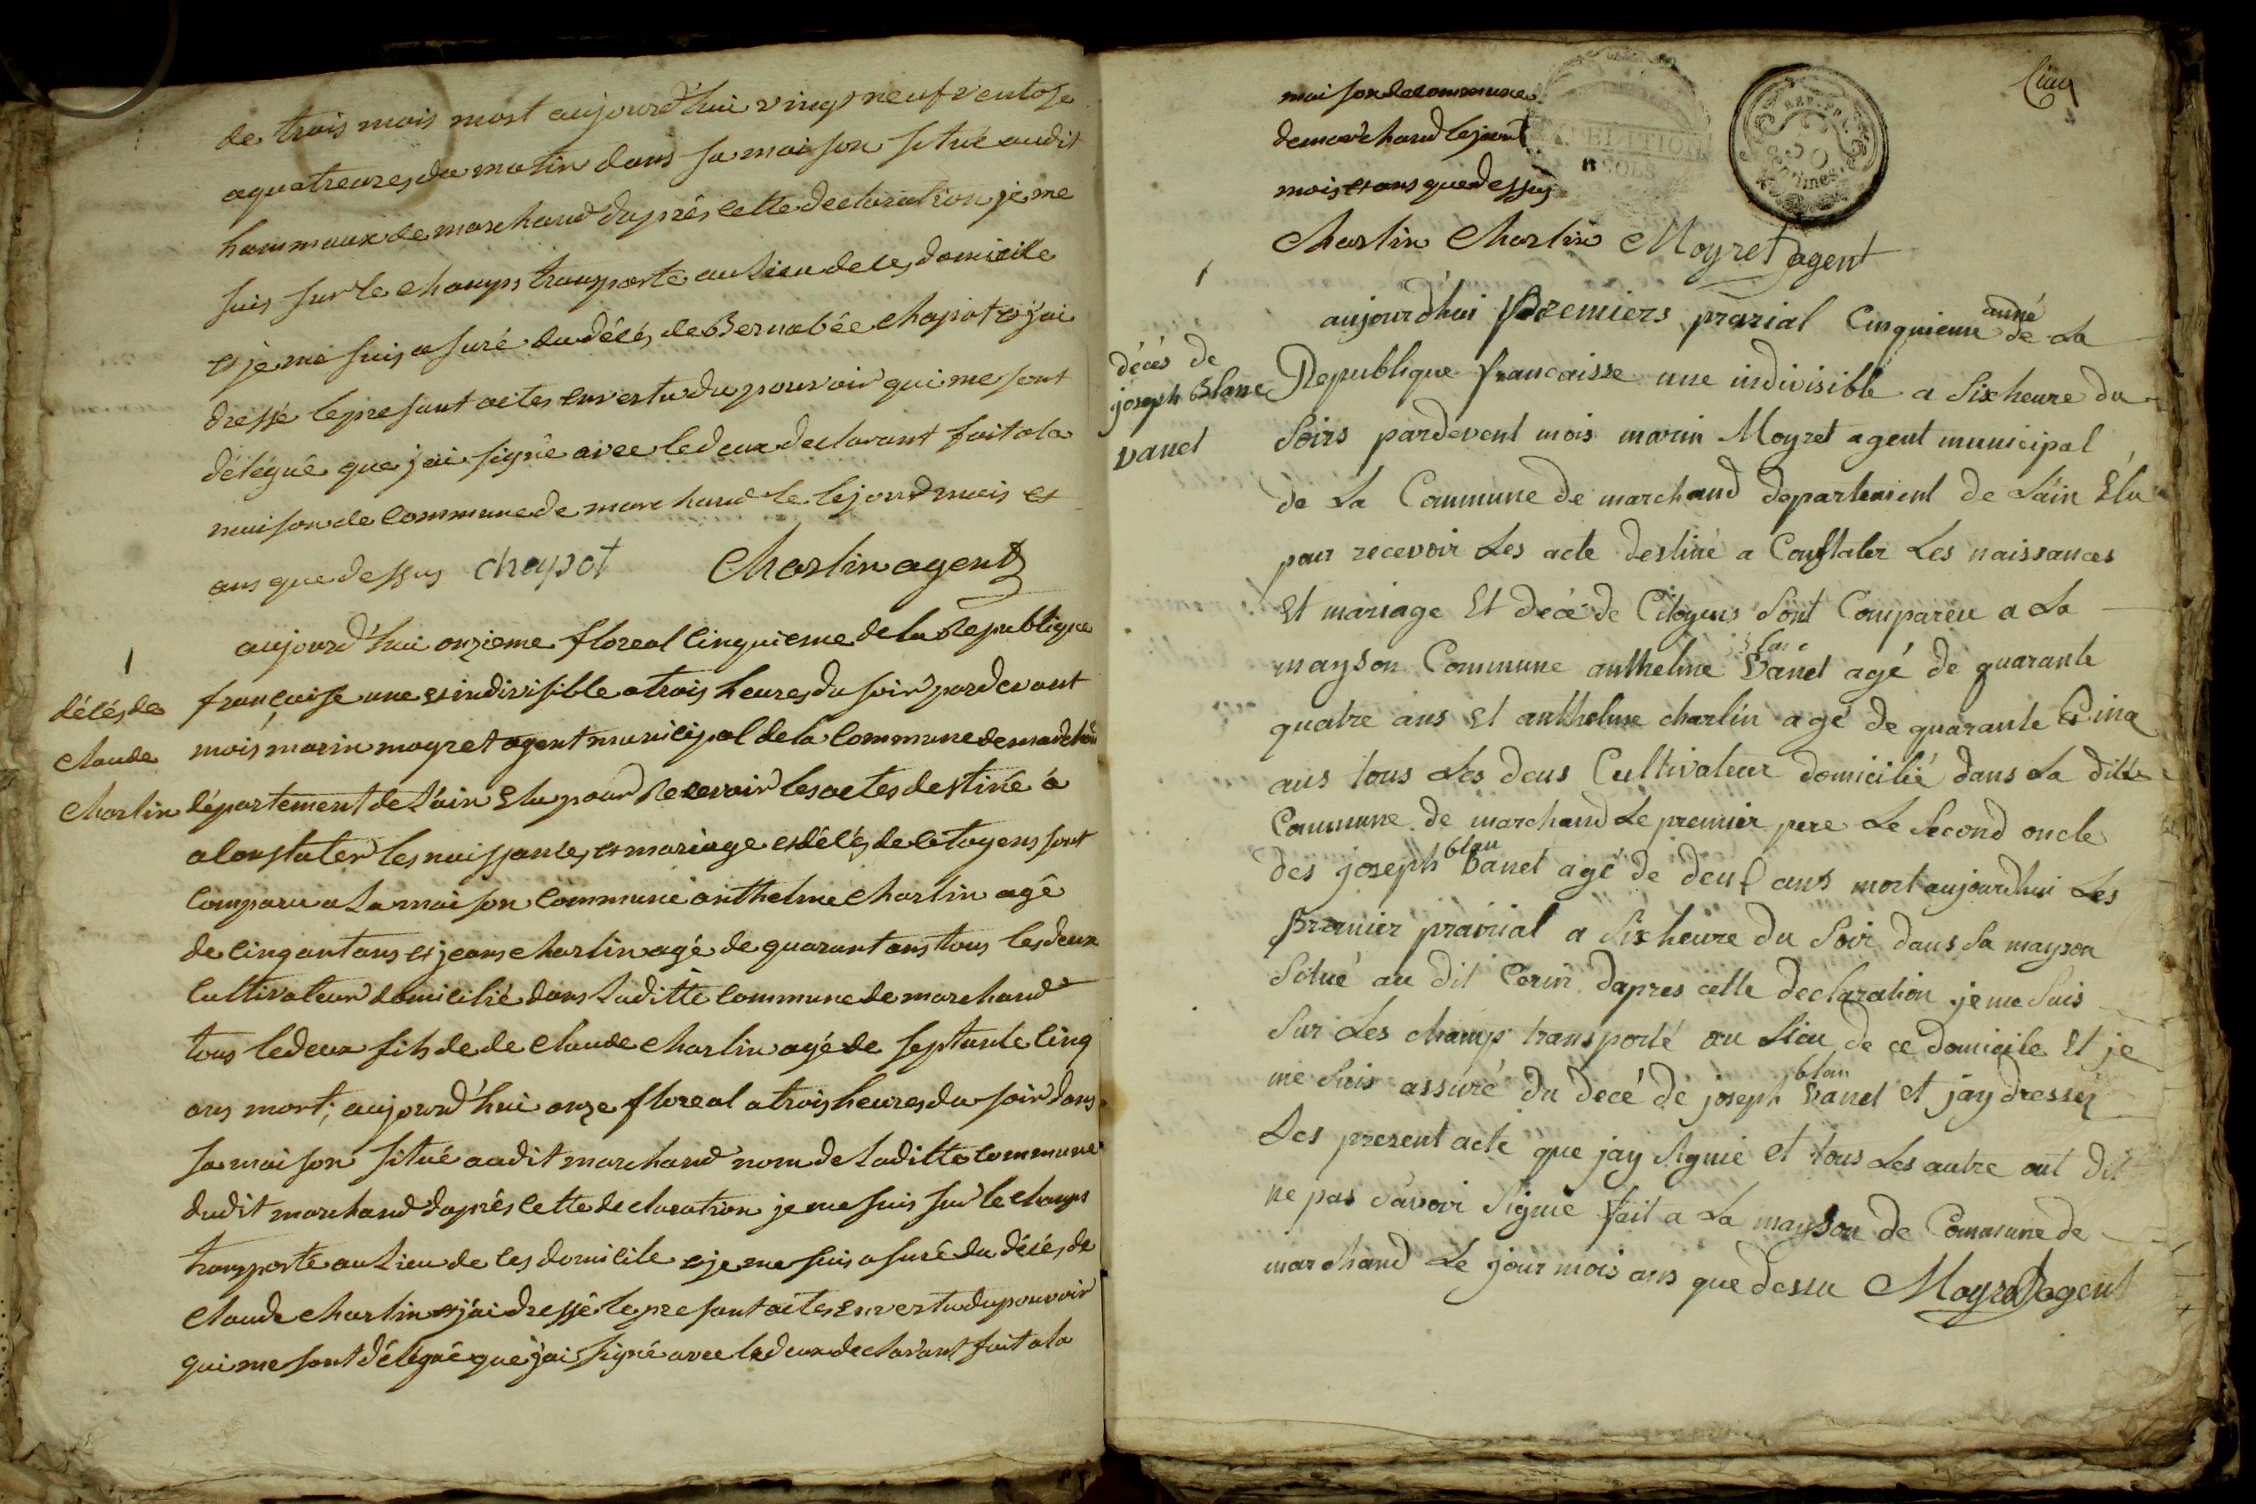 de trois mois mort aujourd'hui vingt neuf ventose
a quatreures du matin dans sa maison situé audit
hammaux de marchand d'après cette declaration je me
suis sur le champs transporté au lieu de ces domicile
et je me suis asuré du décés de Bernabée chapot et j'ai
dressé le presant actes en vertu du pouvoir qui me sont
délégué que j'ai signé avec le deux declarant fait a la
maison de commune de marchand le le jour mois et
ans que dessus chapot Charlin agent
1
aujourd'hui onzieme floreal cinquieme de la Republique
décés de
Claude
Charlin
françaisse une et indivisible a trois heures du soir pardevant
mois marin moyret agent municipal de la commune de marchan
département de l'ain Elu pour Recevoir les actes destiné a
a constater les naissances et mariage et décés de citoyens sont
comparu a La maison commune anthelme Charlin agé
de cinqant ans et jeans charlin agé de quarant ans tous les deux
cultivateur domicilié dans Laditte commune de marchand
tous le deux fils de de Claude charlin agé de septante cinq
ans mort, aujourd'hui onze floreal a trois heures du soir dans
sa maison situé audit marchand nom de Laditte commune
dudit marchand d'après cette declaration je me suis sur le champs
transporté au Lieu de ces domicile et je me suis asuré du décés de
Claude Charlin et j'ai dressé le presant actes en vertu du pouvoir
qui me sont délégué que j'ai signé avec le deux declarant fait a la
Cinq
maison de commune
de marchand le jour
mois et ans que dessus
EXPEDITION
SOLS
REP. FRA.
50
centimes
Charlin Charlin Moyret agent
1
aujourd'hui Premiers prarial Cinquieme anné de La
décés de
joseph Blanc
vanet
Republique francaisse une indivisible a Six heure du
Soirs pardevent mois marin Moyret agent municipal
de La Commune de marchand departement de L'ain Elu
pour recevoir Les acte destiné a Constater Les naissances
Et mariage Et decé de Citoyens Sont Compareu a La
mayson Commune anthelme Blanc Vanet agé de quarante
quatre ans Et anthelme charlin agé de quarante Cinq
ans tous Les deus Cultivateur domicilié dans La ditte
Commune de marchand Le premier pere Le Second oncle
des joseph blan Vanet agé de deus ans mort aujourdhui Les
premier prairial a Six heure du Soir dans Sa mayson
Sitiué au dit Cerin dapres cette declaration je me Suis
Sur Les champ transporté au Lieu de ce domicile Et je
me Suis assuré du decé de joseph blan Vanet et jay dresséz
Les present acte que jay Signié et tous Les autre ont dit
ne pas Savoir Signié fait a La mayson de Commune de
marchand Le jour mois ans que dessu Moyret agent